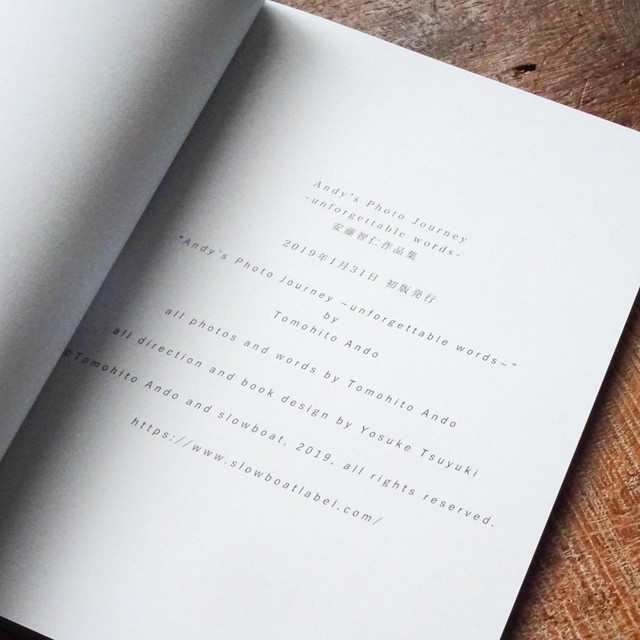 Andy's Photo Journey
~unforgettable words~
安藤智仁作品集
2019年1月31日 初版発行
"Andy's Photo Journey ~unforgettable words~"
by
Tomohito Ando
all photos and words by Tomohito Ando
all direction and book design by Yosuke Tsuyuki
©Tomohito Ando and slowboat, 2019, all rights reserved.
https://www.slowboatlabel.com/